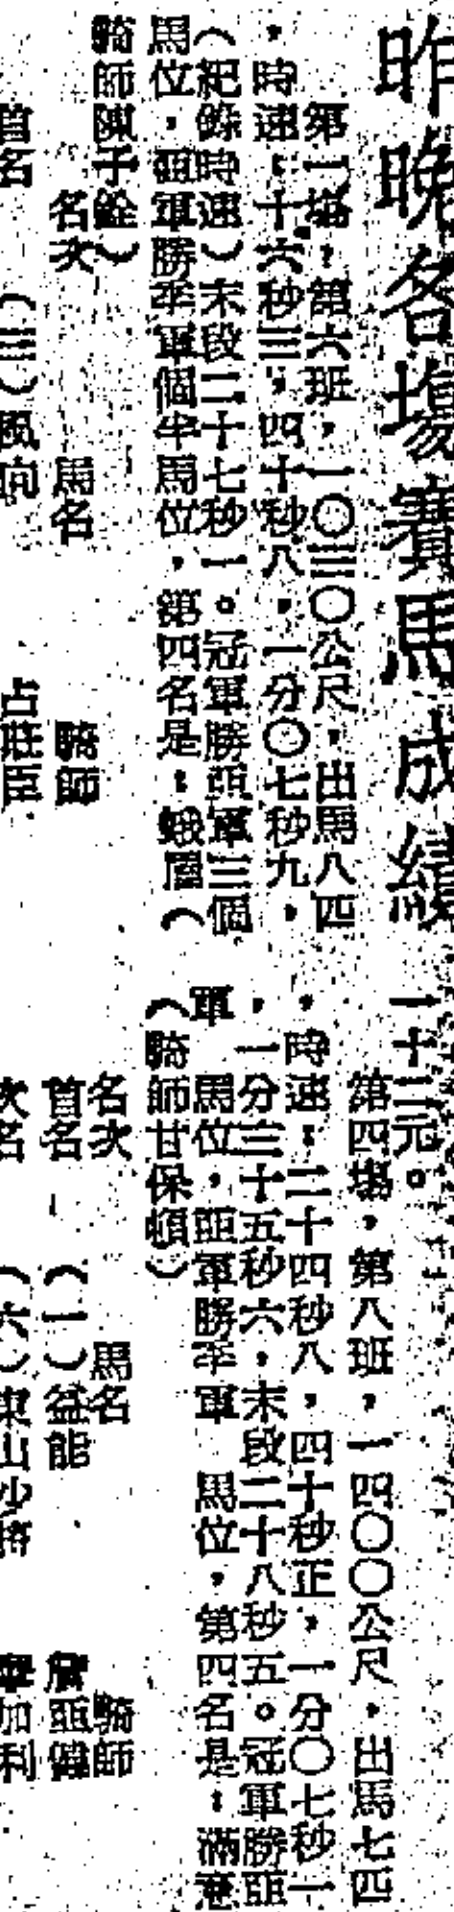 昨晚各場賽馬成績
第一場，第六班，一〇三〇公尺，出馬八匹
，時速：十六秒三，四十秒八，一分〇七秒九，
（紀錄時速）末段二十七秒一。冠軍勝亞軍三個
馬位，亞軍勝季軍個半馬位，第四名是：蛾眉（
騎師陳子銓）
名次　馬名　騎師
首名　（三）風向　占旺臣
一十二元。
第四場，第八班，一四〇〇公尺，出馬七匹
，時速：二十四秒八，四十秒正，一分〇七秒一
，一分三十五秒六，末段二十八秒五。冠軍勝亞
軍　馬位，亞軍勝季軍　馬位，第四名是：滿意
（騎師甘保頓）
名次　馬名　騎師
首名　（一）益能　詹亞偉
次名　（六）東山少將　加利